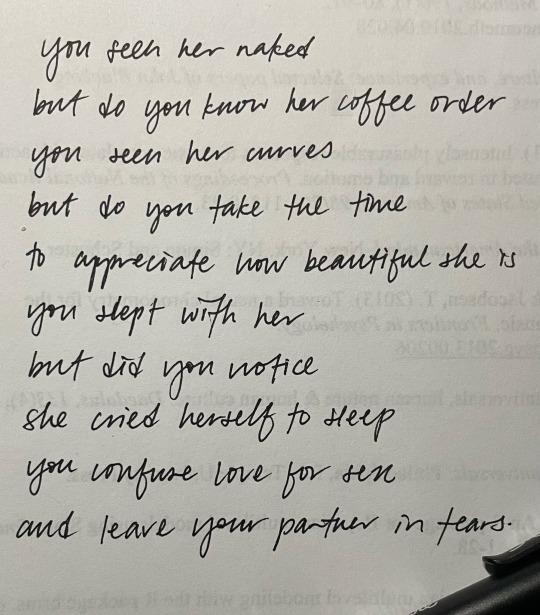 you seen her naked
but do you know her coffee order
you seen her curves
but do you take the time
to appreciate how beautiful she is
you slept with her
but did you notice
she cried herself to sleep
you confuse love for sex
and leave your partner in tears.